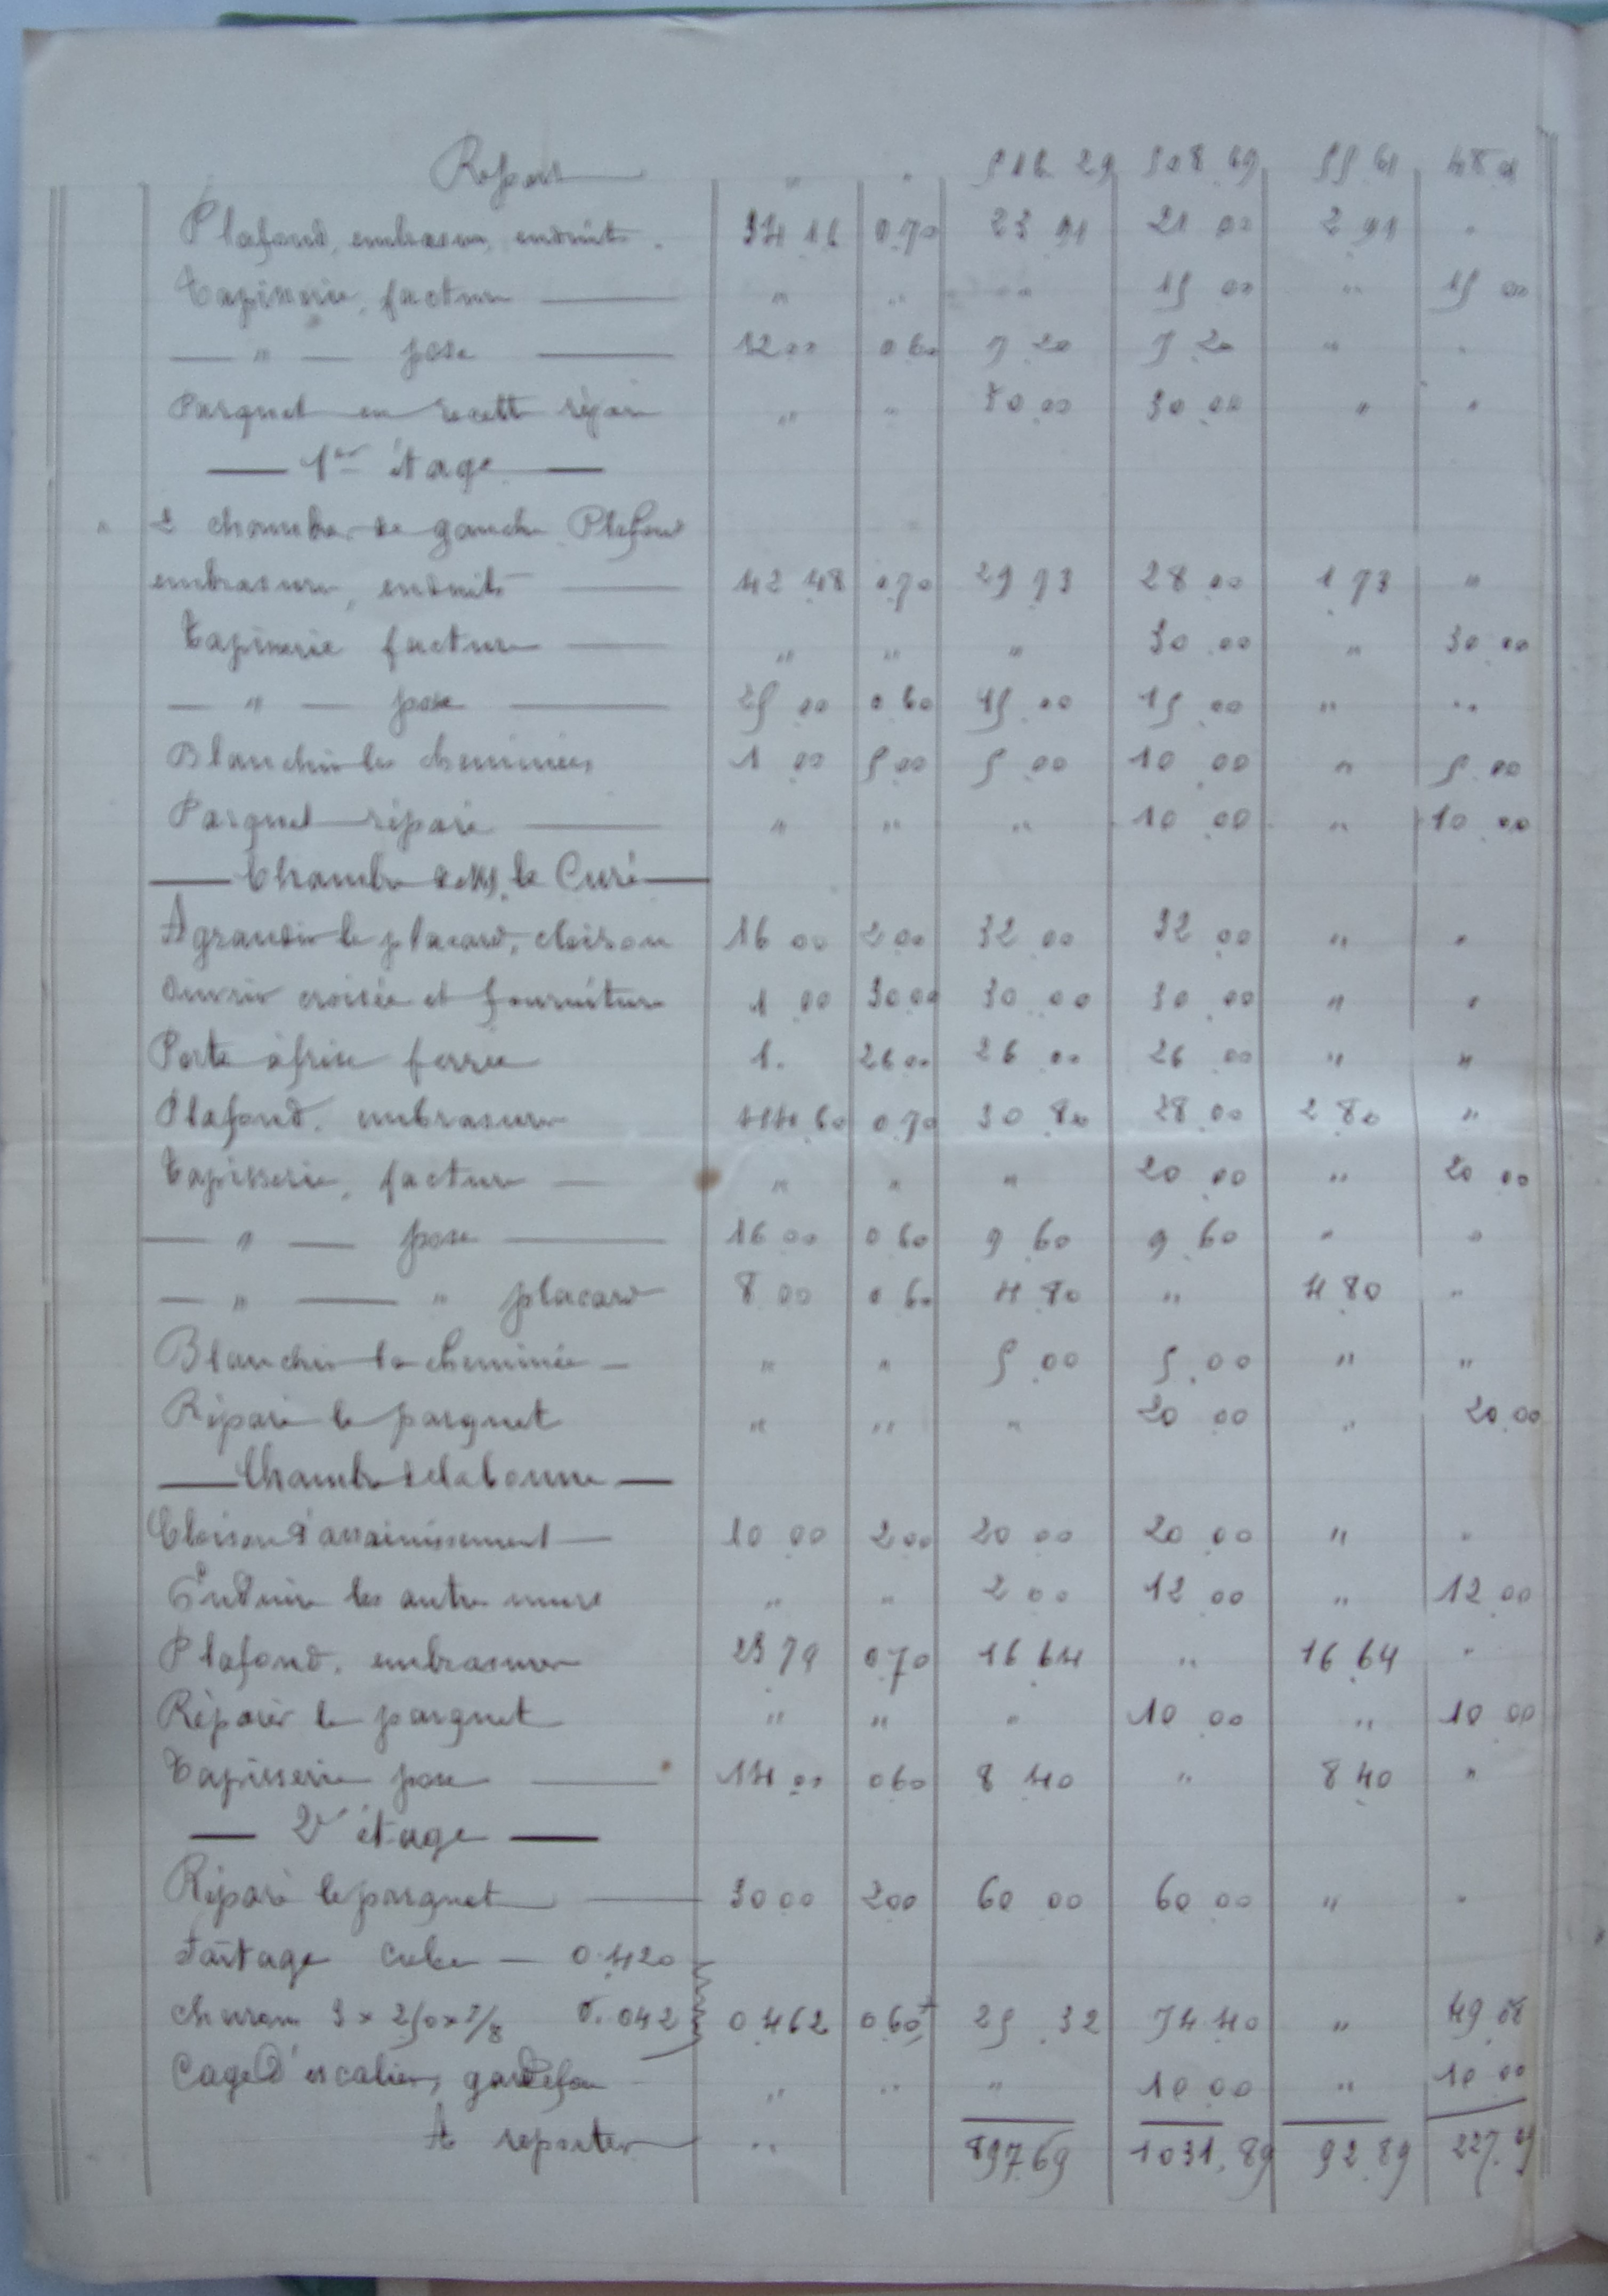 Report " " 516 29 508 69 55 61 48 01
Plafond, embrasure, enduits . 34 16 0.70 23 91 21 00 2 91 "
Tapisserie, facture — " " " 15 00 " 15 00
— " — pose — 12 00 0 60 7 20 7 20 " "
Parquet en recette répare " " 30 00 30 00 " "
— 1er étage —
" 2 chambre de gauche Plafond
embrasure, enduits — 42 48 0.70 29 73 28 00 1 73 "
Tapisserie facture — " " " 30 00 " 30 00
— " — pose — 25 00 0 60 15 00 15 00 " "
Blanchir les cheminées 1 00 5 00 5 00 10 00 " 5 00
Parquet répare — " " " 10 00 " 10 00
— Chambre de Mr le Curé —
Agrandir le placard, cloison 16 00 2 00 32 00 32 00 " "
Ouvrir croisée et fourniture 1 00 30 00 30 00 30 00 " "
Porte à frise ferrée 1. 26 00 26 00 26 00 " "
Plafond. embrasure 44 60 0.70 30 80 28 00 2 80 "
Tapisserie, facture — " " " 20 00 " 20 00
— " — pose — 16 00 0 60 9 60 9 60 " "
— " — " placard 8 00 0 60 4 80 " 4 80 "
Blanchir la cheminée — " " 5 00 5 00 " "
Réparé le parquet " " " 20 00 " 20 00
— Chambre de la bonne —
Cloison d'assainissement — 10 00 2 00 20 00 20 00 " "
Enduire les autres murs " " 2 00 12 00 " 12 00
Plafond. embrasure 23 79 0 70 16 64 " 16 64 "
Réparer le parquet " " " 10 00 " 10 00
Tapisserie pose — 14 00 0 60 8 40 " 8 40 "
— 2e étage —
Réparé le parquet — 30 00 2 00 60 00 60 00 " "
Faitage cube — 0.420
chevron 3 x 250 x 7/8 0.042 0 462 0 60 25 32 74 40 " 49 08
Cage d'escalier, gardefou " " " 10 00 " 10 00
A reporter " 897 69 1031.89 92 89 227.09